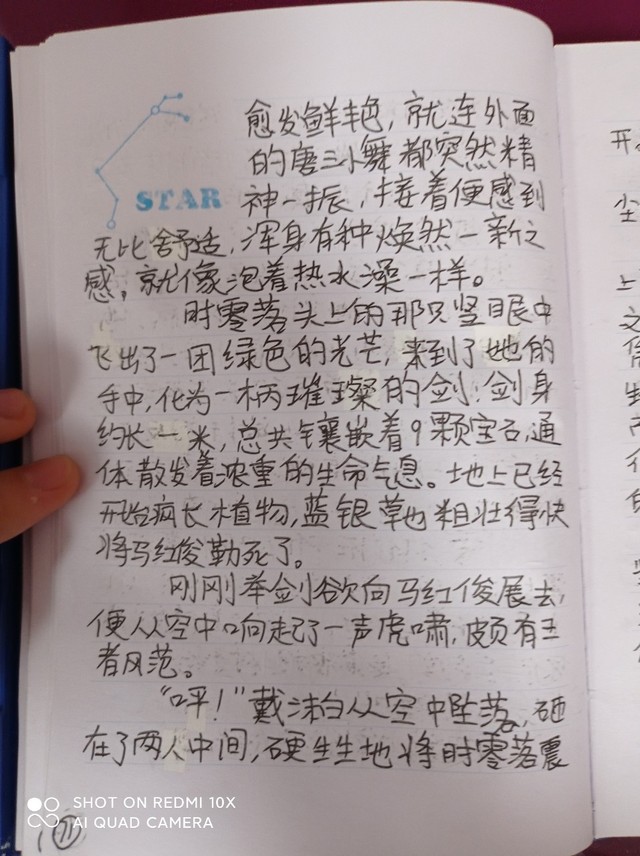 愈发鲜艳，就连外面
的唐三小舞都突然精
STAR
神一振，接着便感到
无比舒适，浑身有种焕然一新之
感，就像泡着热水澡一样。
时零落头上的那只竖眼中
飞出了一团绿色的光芒，来到了她的
手中，化为一柄璀璨的剑；剑身
约长一米，总共镶嵌着9颗宝石，通
体散发着浓重的生命气息。地上已经
开始疯长植物，蓝银草也粗壮得快
将马红俊勒死了。
刚刚举剑欲向马红俊展去，
便从空中响起了一声虎啸，颇有王
者风范。
“呯！”戴沐白从空中坠落，砸
在了两人中间，硬生生地将时零落震
71
SHOT ON REDMI 10X
AI QUAD CAMERA
开
尘
上
文
生